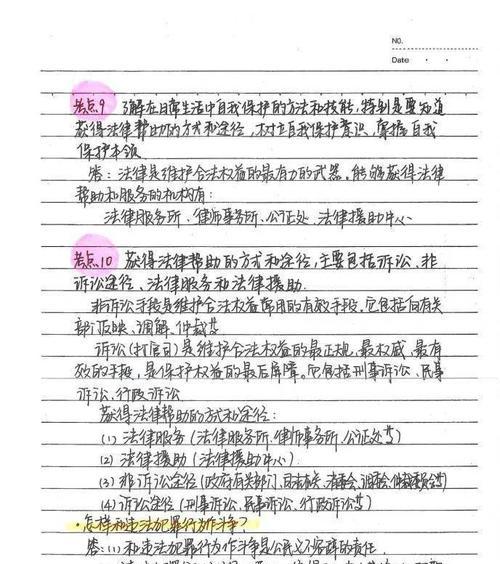 NO.
Date
考点9 了解在日常生活中自我保护的方法和技能,特别是要知道
获得法律帮助的方式和途径,树立自我保护意识,掌握自我
保护本领
答:法律是维护合法权益的最有力的武器。能够获得法律
帮助和服务的机构有:
法律服务所、律师事务所、公证处、法律援助中心
考点10 获得法律帮助的方式和途径,主要包括诉讼、非
诉讼途径、法律服务和法律援助.
非诉讼手段是维护合法权益常用的有效手段。它包括向有关
部门反映、调解、仲裁等
诉讼(打官司)是维护合法权益的最正规、最权威、最有
效的手段,是保护权益的最后屏障。它包括刑事诉讼、民事
诉讼、行政诉讼
获得法律帮助的方式和途径:
(1) 法律服务(法律服务所、律师事务所、公证处等)
(2) 法律援助(法律援助中心)
(3) 非诉讼途径(政府有关部门、司法机关、消委会、调委会、仲裁委员会等)
(4) 诉讼途径(刑事诉讼、民事诉讼、行政诉讼)
·怎样和违法犯罪行为作斗争?
答:(1) 和违法犯罪行为作斗争是公民义不容辞的责任.